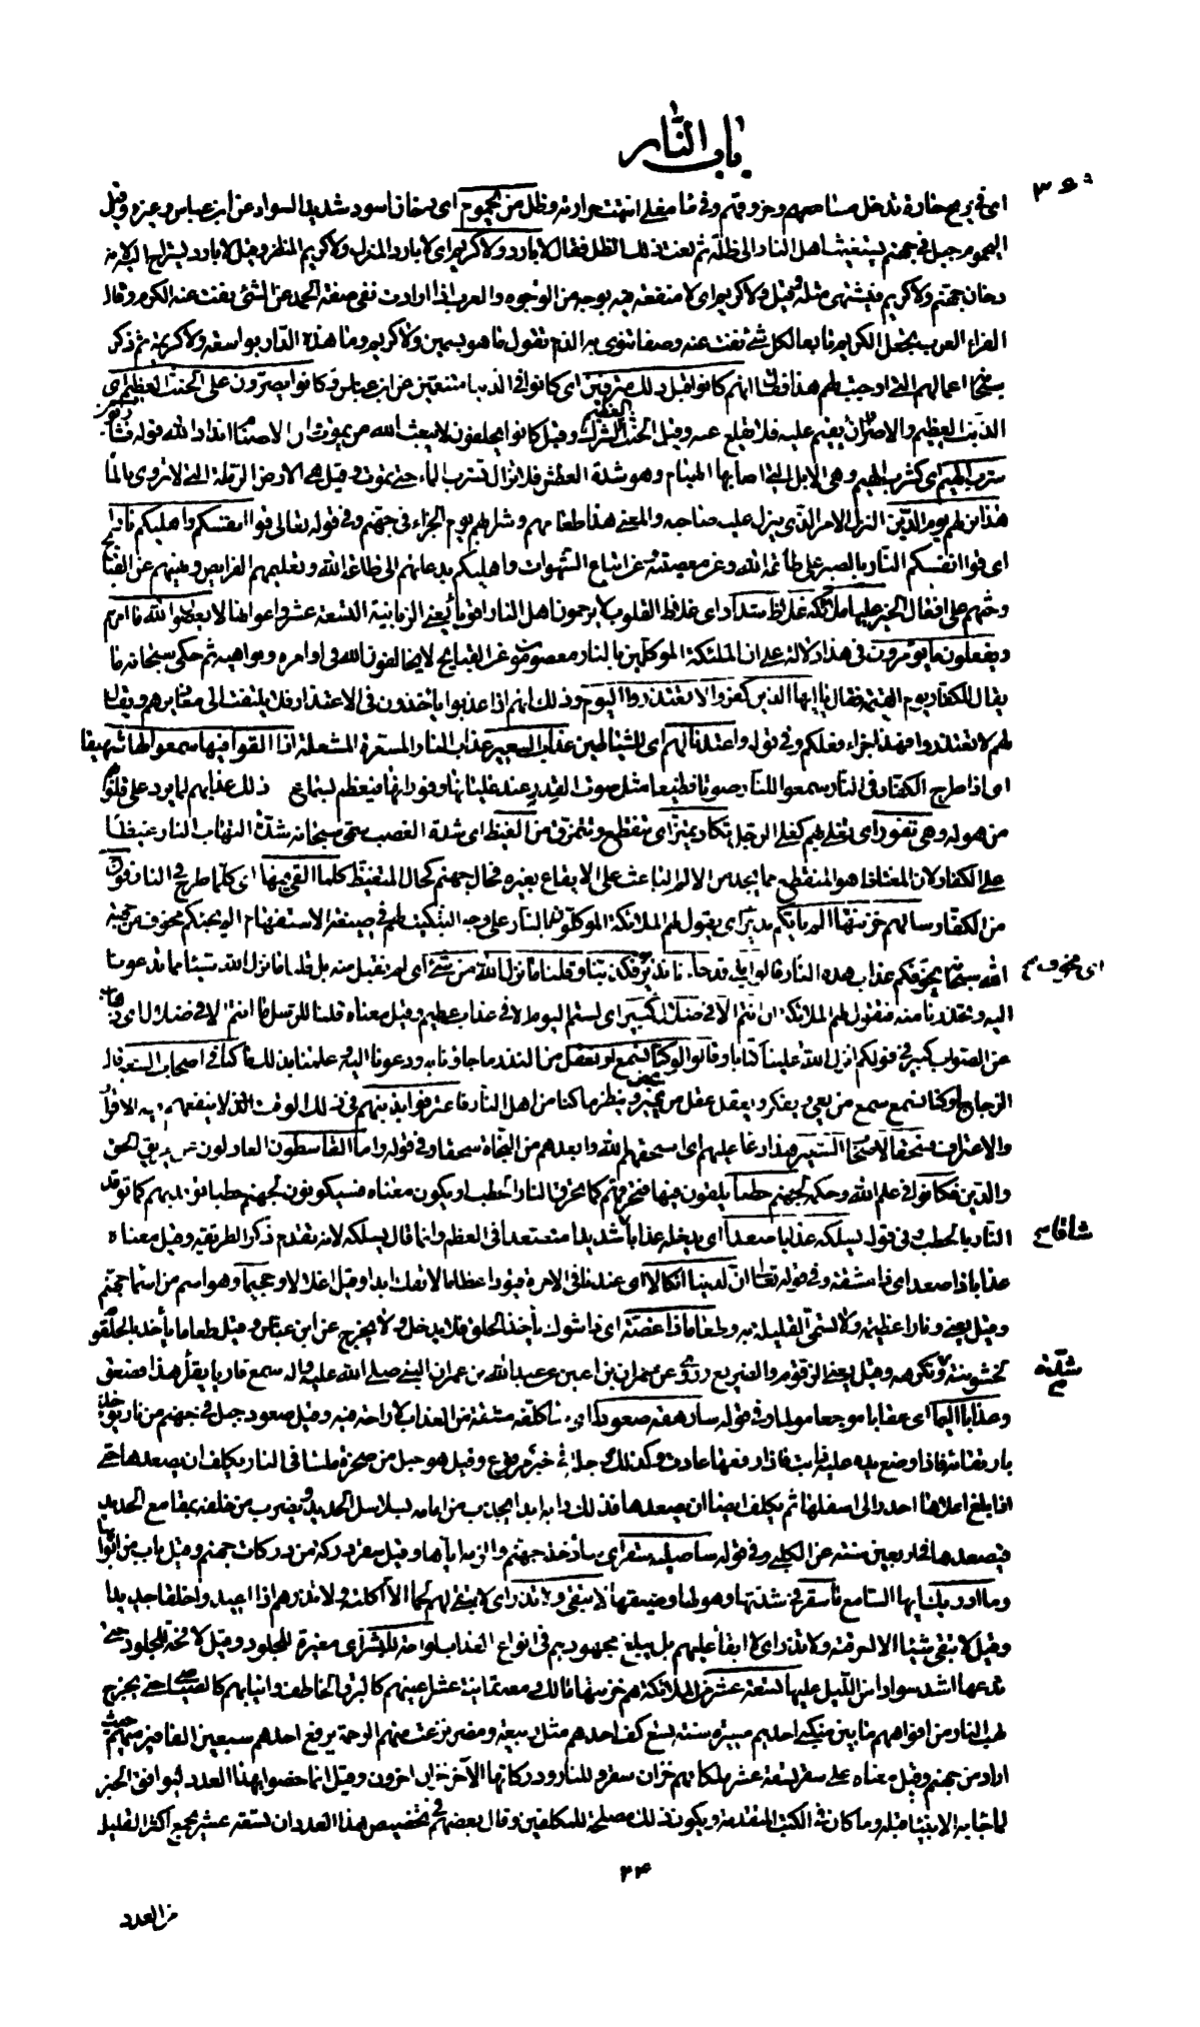 باب النار
٣٦٥
اى فى ريح حارة تدخل مسامهم وخروقهم وفى ماء مغلى انتهت حرارته وظل من يحموم اى دخان اسود شديد السواد عن ابن عباس وغيره وقيل
اليحموم جبل فى جهنم يستغيث اهل النار الى ظله ثم نعت ذلك الظل فقال لا بارد ولا كريم اى لا بارد المنزل ولا كريم المنظر وقيل لا بارد يستراح اليه لانه
دخان جهنم ولا كريم فيشتهى مثله وقيل ولا كريم اى لا منفعة فيه بوجه من الوجوه والعرب اذا ارادت نفى صفة الحمد عن الشئ نفت عنه الكرم وقال
الفراء العرب تجعل الكريم تابعا لكل شئ نفت عنه وصفا تنوى به الذم تقول ما هو بسمين ولا كريم وما هذه الدار بواسعة ولا كريمة ثم ذكر
سبحانه اعمالهم التى اوجبت لهم هذا فقال انهم كانوا قبل ذلك مترفين اى كانوا فى الدنيا متنعمين عن ابن عباس وكانوا يصرون على الحنث العظيم اى
الذنب العظيم والاصرار ان يقيم عليه فلا يقلع عنه وقيل الحنث العظيم الشرك وقيل كانوا يحلفون لا يبعث الله من يموت وان الاصنام انداد الله قوله فشاربون
شرب الهيم اى كشرب الهيم وهى الابل التى اصابها الهيام وهو شدة العطش فلا تزال تشرب الماء حتى تموت وقيل هى الارض الرملة التى لا تروى بالماء
هذا نزلهم يوم الدين النزل الامر الذى ينزل عليه صاحبه والمعنى هذا طعامهم وشرابهم يوم الجزاء فى جهنم وفى قوله تعالى قوا انفسكم واهليكم نارا
اى قوا انفسكم النار بالصبر على طاعة الله وعن معصيته وعن اتباع الشهوات واهليكم بدعائهم الى طاعة الله وتعليمهم الفرايض ونهيهم عن القبايح
وحثهم على افعال الخير عليها ملائكة غلاظ شداد اى غلاظ القلوب لا يرحمون اهل النار اقوياء يعنى الزبانية التسعة عشر واعوانها لا يعصون الله ما امرهم
ويفعلون ما يؤمرون فى هذا دلالة على ان الملئكة الموكلين بالنار معصومون عن القبايح لا يخالفون الله فى اوامره ونواهيه ثم حكى سبحانه ما
يقال للكفار يوم القيمة فقال يا ايها الذين كفروا لا تعتذروا اليوم وذلك انهم اذا عذبوا ياخذون فى الاعتذار فلا يلتفت الى معاذيرهم ويقال
لهم لا تعتذروا فهذا جزاء فعلكم وفى قوله واعتدنا لهم اى للشياطين عذاب السعير عذاب النار المسعرة المشعلة اذا القوا فيها سمعوا لها شهيقا
اى اذا طرح الكفار فى النار سمعوا للنار صوتا فظيعا مثل صوت القدر عند غليانها وفورانها فيعظم بسماع ذلك عذابهم لما يرد على قلوبهم
من هوله وهى تفور اى تغلى بهم كغلى المرجل تكاد تميز اى تتقطع وتتمزق من الغيظ اى شدة الغضب سمى سبحانه شدة التهاب النار غيظا
على الكفار لان المغتاظ هو المتقطع مما يجد من الالم الباعث على الايقاع بغيره فحال جهنم كحال المتغيظ كلما القى فيها اى كلما طرح فى النار فوج
من الكفار وسالهم خزنتها الم ياتكم نذير اى يقول لهم الملائكة الموكلون بالنار على وجه التبكيت لهم فى صيغة الاستفهام الم يجئكم مخوف من جهة
الله سبحانه يخوفكم عذاب هذه النار قالوا بلى قد جاءنا نذير فكذبنا وقلنا ما نزل الله من شئ اى لم نقبل منه بل قلنا ما نزل الله شيئا مما تدعونا
اى مخوف
اليه وتحذرنا منه فتقول لهم الملائكة ان انتم الا فى ضلال كبير اى لستم اليوم الا فى عذاب عظيم وقيل معناه قلنا للرسل ما انتم الا فى ضلال اى ذهاب
عن الصواب كبير فى قولكم انزل الله علينا كتابا وقالوا لو كنا نسمع او نعقل من النذر ما جاؤنا به ودعونا اليه وعلمنا بذلك ما كنا فى اصحاب السعير قال
الزجاج لو كنا نسمع سمع من يعى ويفكر ونعقل عقل من يميز وينظر ما كنا من اهل النار فاعترفوا بذنبهم فى ذلك الوقت الذى لا ينفعهم فيه الاقرار
والاعتراف فسحقا لاصحاب السعير هذا دعاء عليهم اى اسحقهم الله وابعدهم من النجاة سحقا وفى قوله واما القاسطون العادلون عن طريق الحق
والدين فكانوا فى علم الله وحكمه لجهنم حطبا يلقون فيها فتحرقهم كما تحرق النار الحطب او يكون معناه فسيكونون لجهنم حطبا توقد بهم كما توقد
النار بالحطب وفى قوله يسلكه عذابا صعدا اى يدخله عذابا شاقا شديدا متصعدا فى العظم وانما قال يسلكه لانه تقدم ذكر الطريقة وقيل معناه
شاقا
عذابا ذا صعد اى ذا مشقة وفى قوله تعالى ان لدينا انكالا اى عندنا فى الاخرة قيودا عظاما لا تفك ابدا وقيل اغلالا وجحيما وهو اسم من اسماء جهنم
وقيل يعنى ونارا عظيمة ولا يسمى القليلة به وطعاما ذا غصة اى ذا شوك ياخذ الحلق فلا يدخل ولا يخرج عن ابن عباس وقيل طعاما يأخذ بالحلقوم
لخشونته وشدة تكرهه وقيل يعنى الزقوم والضريع وروى عن حمران بن اعين عن عبد الله بن عمر ان النبى صلى الله عليه واله سمع قاريا يقرأ هذا فصعق
شدة
وعذابا اليما اى عقابا موجعا مولما وفى قوله سارهقه صعودا اى ساكلفه مشقة من العذاب لا راحة فيه وقيل صعود جبل فى جهنم من نار يؤخذ
بارتقائه فاذا وضع يده عليه ذابت فاذا رفعها عادت وكذلك رجله فى خبر مرفوع وقيل هو جبل من صخرة ملساء فى النار يكلف ان يصعدها حتى
اذا بلغ اعلاها احدر الى اسفلها ثم يكلف ايضا ان يصعدها فذلك دابه ابدا يجذب من امامه بسلاسل الحديد ويضرب من خلفه بمقامع الحديد
فيصعدها فى اربعين سنة عن الكلبى وفى قوله ساصليه سقر اى سأدخله جهنم والزمه اياها وقيل سقر دركة من دركات جهنم وقيل باب من ابوابها
وما ادريك ايها السامع ما سقر فى شدتها وهولها وضيقها لا تبقى ولا تذر اى لا تبقى لهم لحما الا اكلته ولا تذرهم اذا اعيدوا خلقا جديدا
وقيل لا تبقى شيئا الا احرقته ولا تذر اى لا ابقاء عليهم بل يبلغ مجهودهم فى انواع العذاب لواحة للبشر اى مغيرة للجلود وقيل لافحة للجلود حتى
تدعها اشد سوادا من الليل عليها تسعة عشر من الملائكة هم خزنتها مالك ومعه ثمانية عشر اعينهم كالبرق الخاطف وانيابهم كالصياصى يخرج
لهب النار من افواههم ما بين منكبى احدهم مسيرة سنة تسع كف احدهم مثل ربيعة ومضر نزعت منهم الرحمة يرفع احدهم سبعين الفا فيرميهم حيث
اراد من جهنم وقيل معناه على سقر تسعة عشر ملكا فهم خزان سقر وللنار ودركاتها الآخر خزان اخرون وقيل انما خصوا بهذا العدد ليوافق الخبر
لما جاء به الانبياء قبله وما كان فى الكتب المتقدمة ويكون ذلك مصلحة للمكلفين وقال بعضهم فى تخصيص هذا العدد ان تسعة عشر يجمع اكثر القليل
٢٤
من العدد